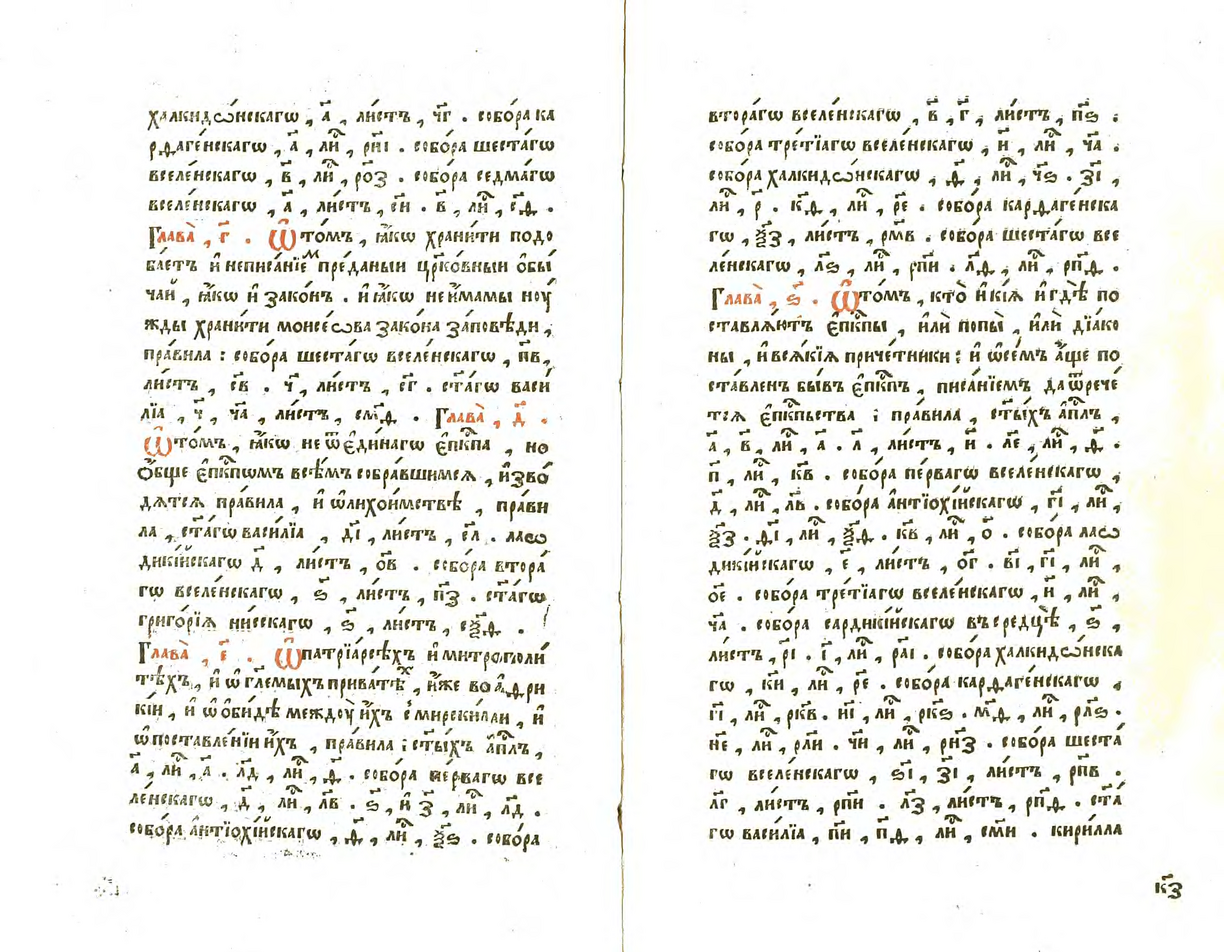 халкидѡ́нскагѡ , а҃ , ли́стъ , ч҃г . собо́ра ка
рѳаге́нскагѡ , а҃ , лиⷭ҇ , рн҃і . собо́ра шеста́гѡ
вселе́нскагѡ , в҃ , лиⷭ҇ , ро҃з . собо́ра седма́гѡ
вселе́нскагѡ , а҃ , ли́стъ , с҃и . в҃ , лиⷭ҇ , с҃ѳ .
Глава̀ , г҃ . Ѡ҆то́мъ , ꙗ҆́кѡ храни́ти подо
ба́етъ и҆ неписа́нїеⷨ пре́даныи цр҃ко́вныи ѻ҆бы́
чаи , ꙗ҆́кѡ и҆ зако́нъ . и҆ ꙗ҆́кѡ не и҆́мамы ноу́
жды храни́ти моисе́ѡва зако́на за́повѣди ,
пра́вила : собо́ра шеста́гѡ вселе́нскагѡ , п҃в ,
ли́стъ , с҃в . ч҃ , ли́стъ , с҃г . ст҃а́гѡ васи́
лїа , ч҃ , ч҃а , ли́стъ , см҃ѳ . Глава̀ , д҃ .
Ѡ҆то́мъ , ꙗ҆́кѡ не ѿ є҆ди́нагѡ є҆пкⷭ҇па , но
ѻ҆́бще є҆пкⷭ҇пѡмъ всѣ́мъ собра́вшимсѧ , и҆зво́
дѧтсѧ пра́вила , и҆ ѡ҆лихои́мствѣ , пра́ви
ла , ст҃а́гѡ васи́лїа , д҃і , ли́стъ , с҃л . лаѡ
дикі́йскагѡ д҃ , ли́стъ , о҃в . собо́ра втора́
гѡ вселе́нскагѡ , ѕ҃ , ли́стъ , п҃з . ст҃а́гѡ
григо́рїѧ ни́сскагѡ , ѕ҃ , ли́стъ , сѯ҃ѳ .
Глава̀ , є҃ . Ѡ҆патрїа́рсѣхъ и҆ митрополи́
тѣхъ , и҆ ѡ҆ гл҃емыхъ прива́тѣⷯ , и҆́же во а҆дри
кі́и , и҆ ѡ҆ ѻ҆би́дѣ междоу̀ и҆́хъ с мирски́ми , и҆
ѡ҆поставле́нїи и҆́хъ , пра́вила : ст҃ы́хъ а҆пⷭ҇лъ ,
а҃ , лиⷭ҇ , а҃ . л҃д , лиⷭ҇ , ѳ҃ . собо́ра пе́рвагѡ все
ле́нскагѡ , д҃ , лиⷭ҇ , л҃в . ѕ҃ , и҆ з҃ , лиⷭ҇ , л҃д .
собо́ра а҆нтїохі́йскагѡ , ѳ҃ , лиⷭ҇ , ѯ҃ѕ . собо́ра
втора́гѡ вселе́нскагѡ , в҃ , г҃ , ли́стъ , п҃ѕ .
собо́ра тре́тїагѡ вселе́нскагѡ , и҃ , лиⷭ҇ , ч҃а .
собо́ра халкидѡ́нскагѡ , ѳ҃ , лиⷭ҇ , ч҃ѕ . з҃і ,
лиⷭ҇ , р҃ . к҃ѳ , лиⷭ҇ , р҃е . собо́ра карѳаге́нска
гѡ , ѯ҃з , ли́стъ , рм҃в . собо́ра шеста́гѡ все
ле́нскагѡ , л҃ѕ , лиⷭ҇ , рп҃и . л҃ѳ , лиⷭ҇ , рп҃ѳ .
Глава̀ , ѕ҃ . Ѡ҆то́мъ , кто̀ и҆ кі́ѧ и҆ гдѣ̀ по
ставлѧ́ютъ є҆пкⷭ҇пы , и҆лѝ попы̀ , и҆лѝ дїа́ко
ны , и҆ всѧ́кїѧ приче́тники : и҆ ѡ҆се́мъ а҆́ще по
ста́вленъ бы́въ є҆пкⷭ҇пъ , писа́нїемъ да ѿрече́
тсѧ є҆пкⷭ҇пьства : пра́вила , ст҃ы́хъ а҆пⷭ҇лъ ,
а҃ , в҃ , лиⷭ҇ , а҃ . л҃ , ли́стъ , и҃ . л҃е , лиⷭ҇ , ѳ҃ .
п҃ , лиⷭ҇ , к҃в . собо́ра пе́рвагѡ вселе́нскагѡ ,
д҃ , лиⷭ҇ , л҃в . собо́ра а҆нтїохі́йскагѡ , г҃і , лиⷭ҇ ,
ѯ҃з . ѳ҃і , лиⷭ҇ , ѯ҃ѳ . к҃в , лиⷭ҇ , о҃ . собо́ра лаѡ
дикі́йскагѡ , є҃ , ли́стъ , о҃г . в҃і , г҃і , лиⷭ҇ ,
о҃е . собо́ра тре́тїагѡ вселе́нскагѡ , и҃ , лиⷭ҇ ,
ч҃а . собо́ра сардикі́йскагѡ въ сре́дцѣ , ѕ҃ ,
ли́стъ , р҃і . г҃ , лиⷭ҇ , ра҃і . собо́ра халкидѡ́нска
гѡ , к҃и , лиⷭ҇ , р҃е . собо́ра карѳаге́нскагѡ ,
г҃і , лиⷭ҇ , рк҃в . н҃і , лиⷭ҇ , рк҃ѕ . м҃ѳ , лиⷭ҇ , рл҃ѕ .
н҃е , лиⷭ҇ , рл҃и . ч҃и , лиⷭ҇ , рн҃з . собо́ра шеста́
гѡ вселе́нскагѡ , ѕ҃і , з҃і , ли́стъ , рп҃в .
л҃г , ли́стъ , рп҃и . л҃з , ли́стъ , рп҃ѳ . ст҃а́
гѡ васи́лїа , п҃и , п҃ѳ , лиⷭ҇ , см҃и . кири́лла
к҃з